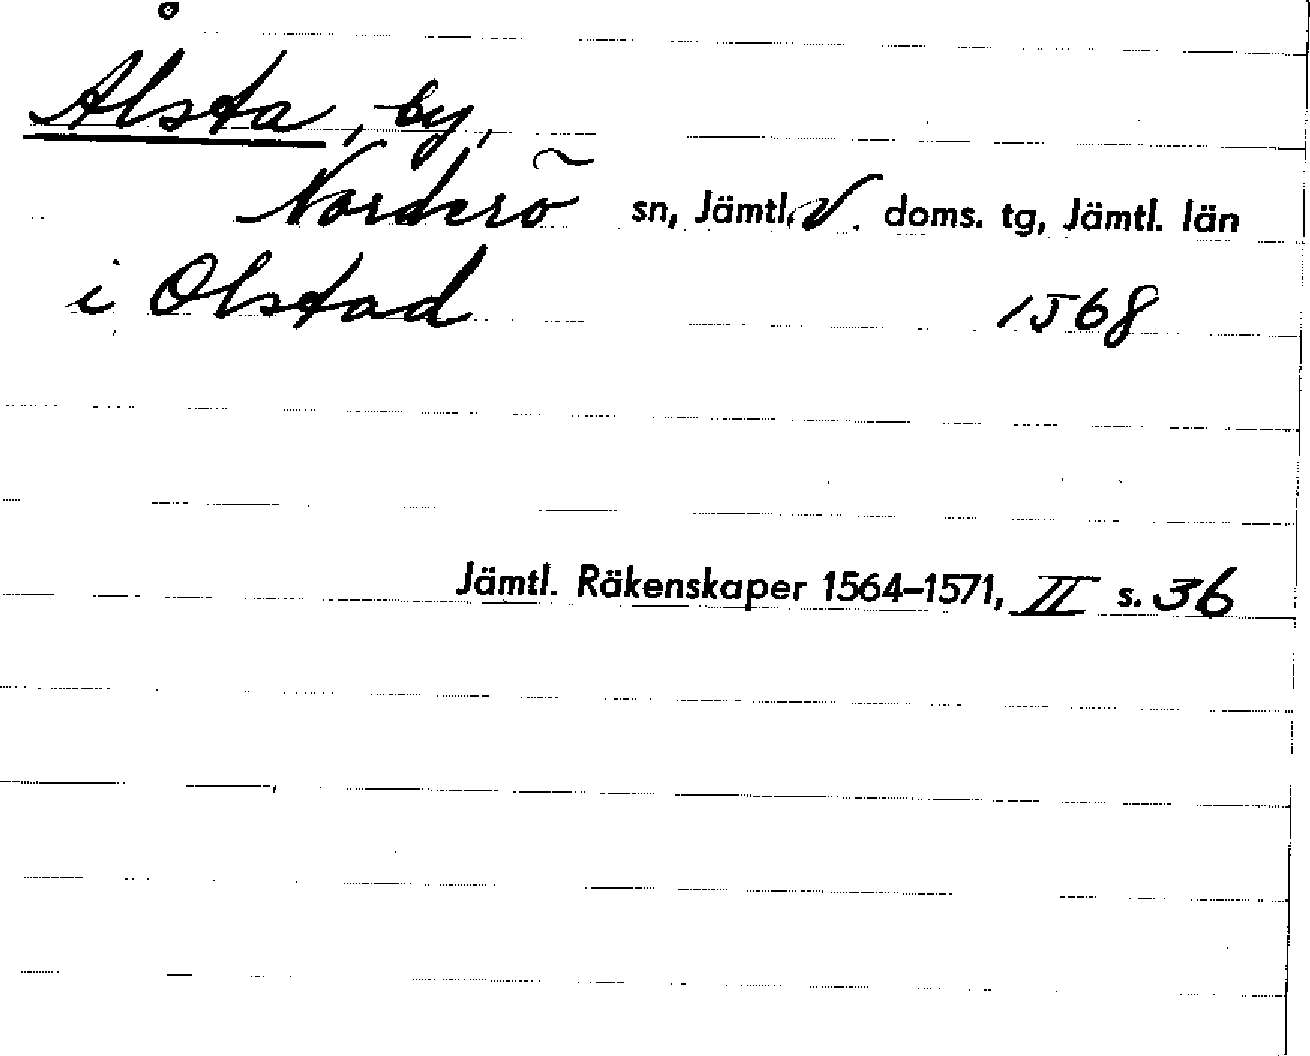 Ålsta, by,
Norderö sn, Jämtl. V. doms. tg, Jämtl. län
i Olstad 1568
Jämtl. Räkenskaper 1564–1571, II s. 36